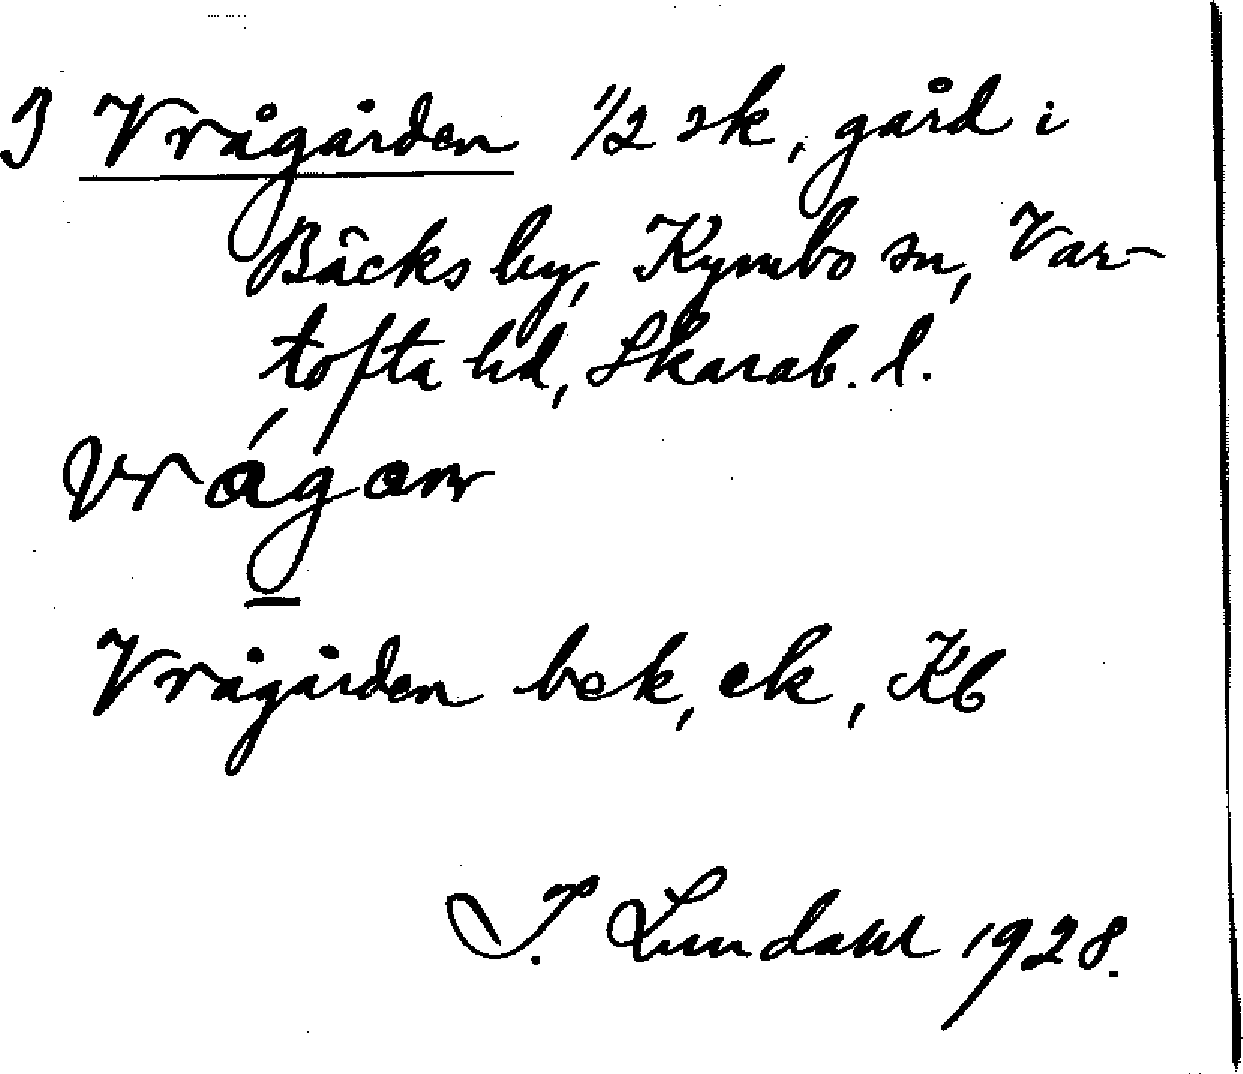 J Vrågården 1/2 sk, gård i
Bäcks by, Kymbo sn, Var-
tofta hd, Skarab. l.
Vrågården bek, ek, Kb
I. Lundahl 1928.